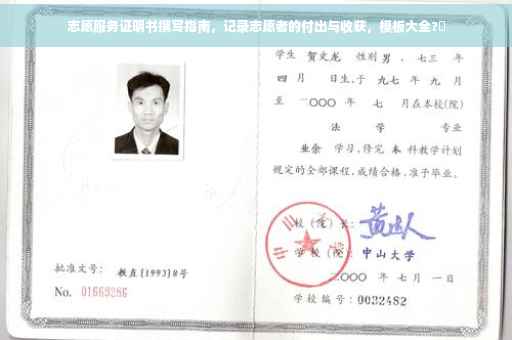 志愿服务证明书撰写指南，记录志愿者的付出与收获，模板大全?
学生 贺文龙 性别 男，七三 年
四 月 日生，于 九七 年 九 月
至 二〇〇〇 年 七 月在本校(院)
法 学 专业
业余 学习，修完 本 科教学计划
规定的全部课程，成绩合格，准予毕业。
校(院)长：
学校(院)：中山大学
二〇〇〇 年 七 月 一 日
学校编号：0032482
批准文号：教直[1993]8号
No. 01669286
中山大学